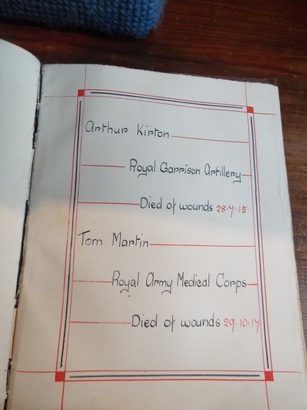 Arthur Kirton
Royal Garrison Artillery
Died of wounds 28·4·15·
Tom Martin
Royal Army Medical Corps
Died of wounds 29·10·17